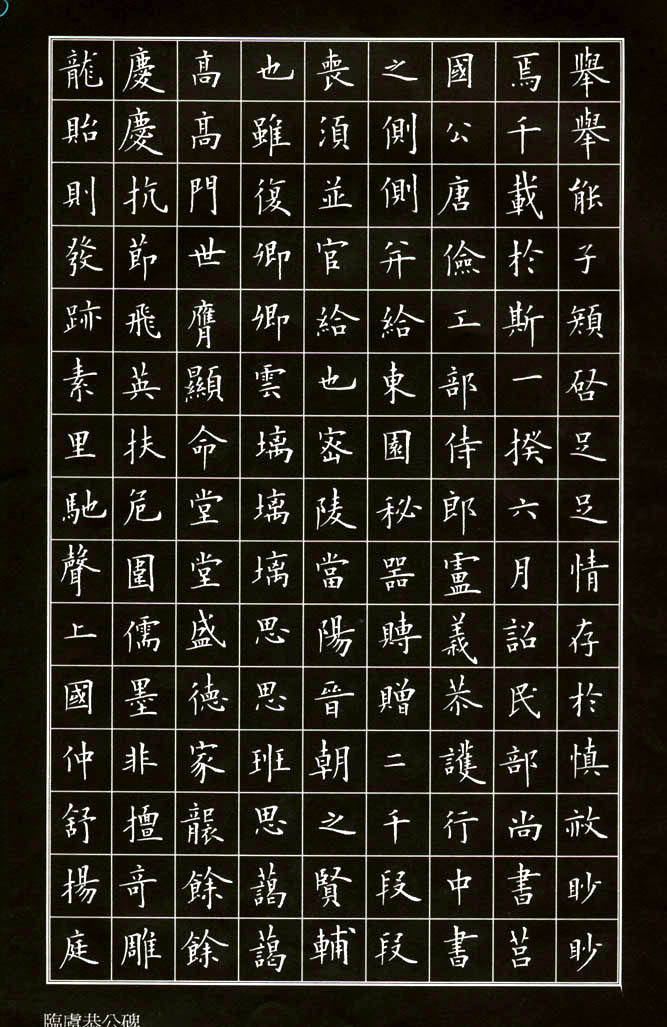 舉舉能子頍啓足足情存於慎祕眇眇
焉千載於斯一揆六月詔民部尚書莒
國公唐儉工部侍郎盧義恭護行中書
之側側并給東園秘器賻贈二千段段
喪須並官給也密陵當陽晉朝之賢輔
也雖復卿卿雲墧墧墧思思班思藹藹
高高門世膺顯命堂堂盛德家襲餘餘
慶慶抗節飛英扶危圉儒墨非擅奇雕
龍貽則發跡素里馳聲上國仲舒揚庭
臨虞恭公碑